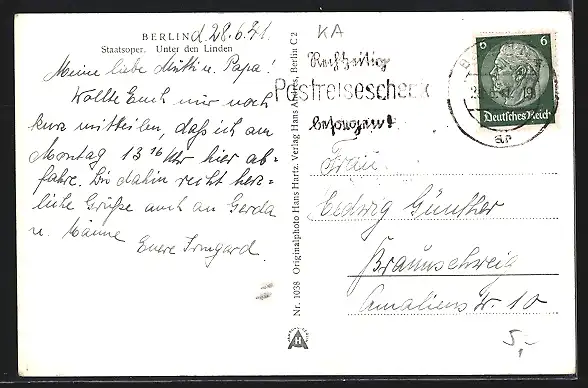 BERLIN d. 28.6.41.
Staatsoper. Unter den Linden
Meine liebe Mutti u. Papa!
Wollte Euch nur noch
kurz mitteilen, daß ich am
Montag 13 16 Uhr hier ab-
fahre. Bis dahin recht herz-
liche Grüße auch an Gerda
u. Männe
Euere Irmgard.
Nr. 1038 Originalphoto Hans Hartz. Verlag Hans Andres, Berlin C 2
KA
Rechtzeitig
Postreisescheck
besorgen!
6 6
Deutsches Reich
Frau
Hedwig Günther
Braunschweig
Amalienstr. 10
5,-